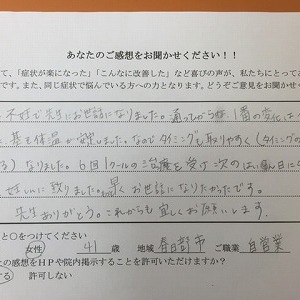 あなたのご感想をお聞かせください！！
て、「症状が楽になった」「こんなに改善した」など喜びの声が、私たちにとって
です。また、同じ症状で悩んでいる方への力となります。どうぞご意見をお聞かせ
不妊で先生にお世話になりました。通ってから 1番の変化は
基も体温が安定しました。なのでタイミングも取りやすく（タイミング
る）なりました。6回1クールの治療を受け 次の
妊しんに致りました。早く お世話になりたかったです。
先生ありがとう。これからも宜しくお願いします。
と○をつけてください
女性 41 歳 地域 春日部市 ご職業 自営業
の感想をHPや院内掲示することを許可いただけますか？
する 許可しない